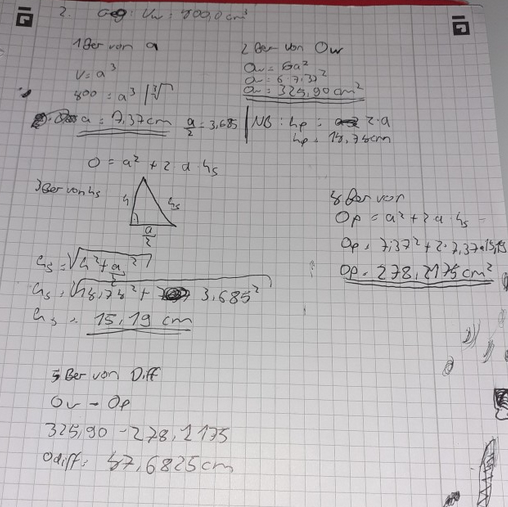 2. Geg: Vw = 400,0 cm³
1 Ber von a
V = a³
400 = a³ |∛
a = 7,37 cm a/2 = 3,685
2 Ber von Ow
Ow = 6a²
Ow = 6·7,37²
Ow = 325,90 cm²
NB: hp = 2·a
hp = 14,74 cm
O = a² + 2·a·hs
3 Ber von hs
h hs
a/2
hs = √h² + a/2²
hs = √14,74² + 3,685²
hs = 15,19 cm
4 Ber von
Op = a² + 2a·hs
Op = 7,37² + 2·7,37·15,19
Op = 278,2175 cm²
5 Ber von Diff
Ow - Op
325,90 - 278,2175
Odiff = 47,6825 cm